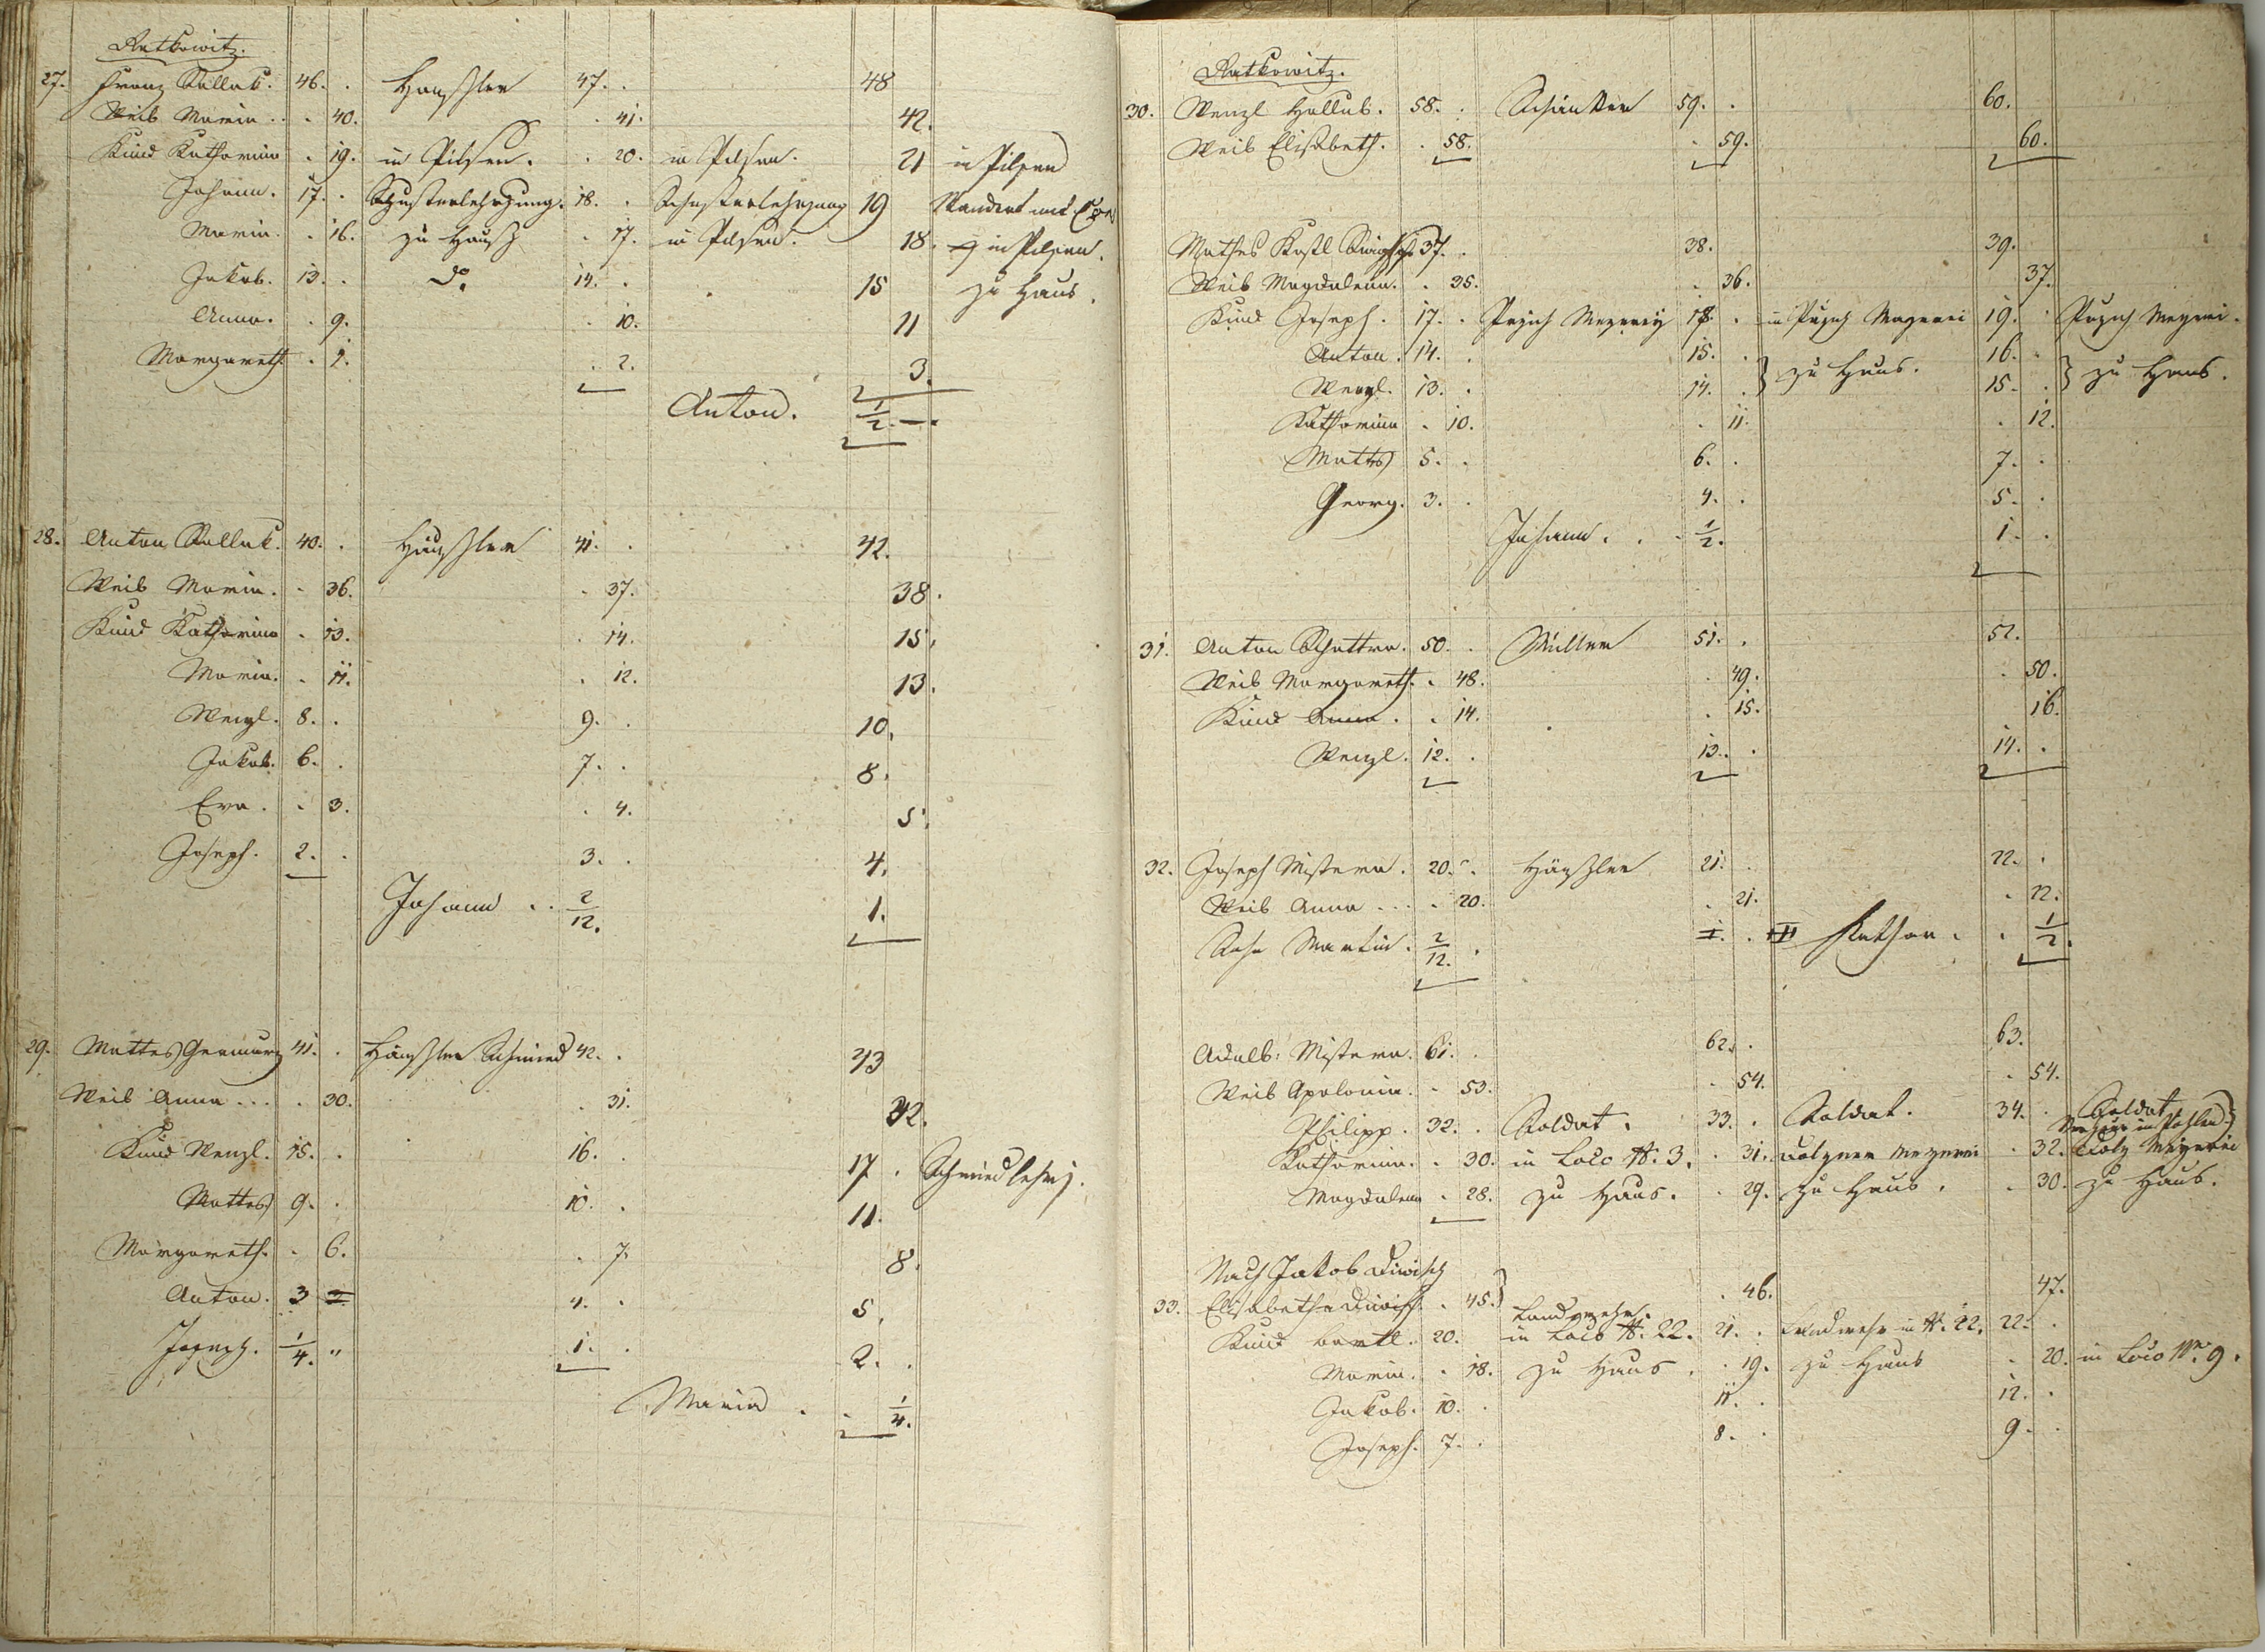 Ratkowitz.
27. Franz Kollak. 46. . Häußler 47. . 48
Weib Maria . . . 40. . 41. 42.
Kind Katharina . 19. in Pilsen. . 20. in Pilsen. 21 in Pilsen
Johann. 17. . Schusterlehrjung. 18. . Schusterlehrjung 19 Wandert mit
Maria. . 16. zu Hauß . 17. in Pilsen. 18. in Pilsen.
Jakob. 13. . do. 14. . 15 zu Haus.
Anna. . 9. . 10. 11
Margareth. . 1. . 2. 3.
Anton. 1/2. —.
28. Anton Kollak. 40. . Häußler 41. . 42.
Weib Maria. . 36. . 37. 38.
Kind Katharina . 13. . 14. 15.
Maria. . 11. . 12. 13.
Wenzl. 8. . 9. . 10.
Jakob. 6. . 7. . 8.
Eva. . 3. . 4. 5.
Joseph. 2. . 3. . 4.
Johann . . 2/12. 1.
29. Mattes 41. . Häußler Schmied 42. . 43
Weib Anna . . . . 30. . 31. 32.
Kind Wenzl. 15. . 16. . 17 . Schmiedlehrj.
Mattes 9. . 10. . 11.
Margareth. . 6. . 7. 8.
Anton. 3 4. . 5.
Joseph. 1/4. " 1. . 2. .
Maria . . 1/4.
Ratkowitz.
30. Wenzl Hollub. 58. . Schänker 59. . 60.
Weib Elisabeth. . 58. . 59. 60.
Mathes Kastl 37. . 38. 39.
Weib Magdalena. . 35. . 36. 37.
Kind Joseph. 17. . Meyerey 18. . in Mayerei 19. . Meyerei.
Anton. 14. . 15. . } zu Haus. 16. . } zu Haus.
Wenzl. 13. . 14. . 15. .
Katharina . 10. . 11. . 12.
Mattes 5. . 6. . 7. .
Georg. 3. . 4. . 5. .
Johann. . . 1/2. 1. .
31. Anton 50. . Müller 51. . 52.
Weib Margareth. . 48. . 49. . 50.
Kind Anna. . 14. . 15. . 16.
Wenzl. 12. . 13. . 14. .
32. Joseph Mistera. 20. . Häußler 21. . 22. .
Weib Anna . . . . 20. . 21. . 22.
Sohn Martin. 2/12. . 1. . Kathar. . 1/2.
Adalb: Mistera. 61. . 62. . 63.
Weib Apolonia. . 53. . 54. . 54.
Philipp. 32. . Soldat. 33. . Soldat. 34. . Soldat
Katharina. . 30. in Loco N. 3. . 31. Meyerei . 32. Meyerei
Magdalena . 28. zu Haus. . 29. zu Haus. . 30. zu Haus.
Nach Jakob Diwisch
33. Elisabetha Diwisch. . 45. } . 46. 47.
Landwehr.
Kind Bartl. 20. in Loco N. 22. 21. . Landwehr in N. 22. 22. .
Maria. . 18. zu Haus. . 19. zu Haus . 20. in Loco Nro 9.
Jakob. 10. . 11. . 12. .
Joseph. 7. . 8. . 9. .